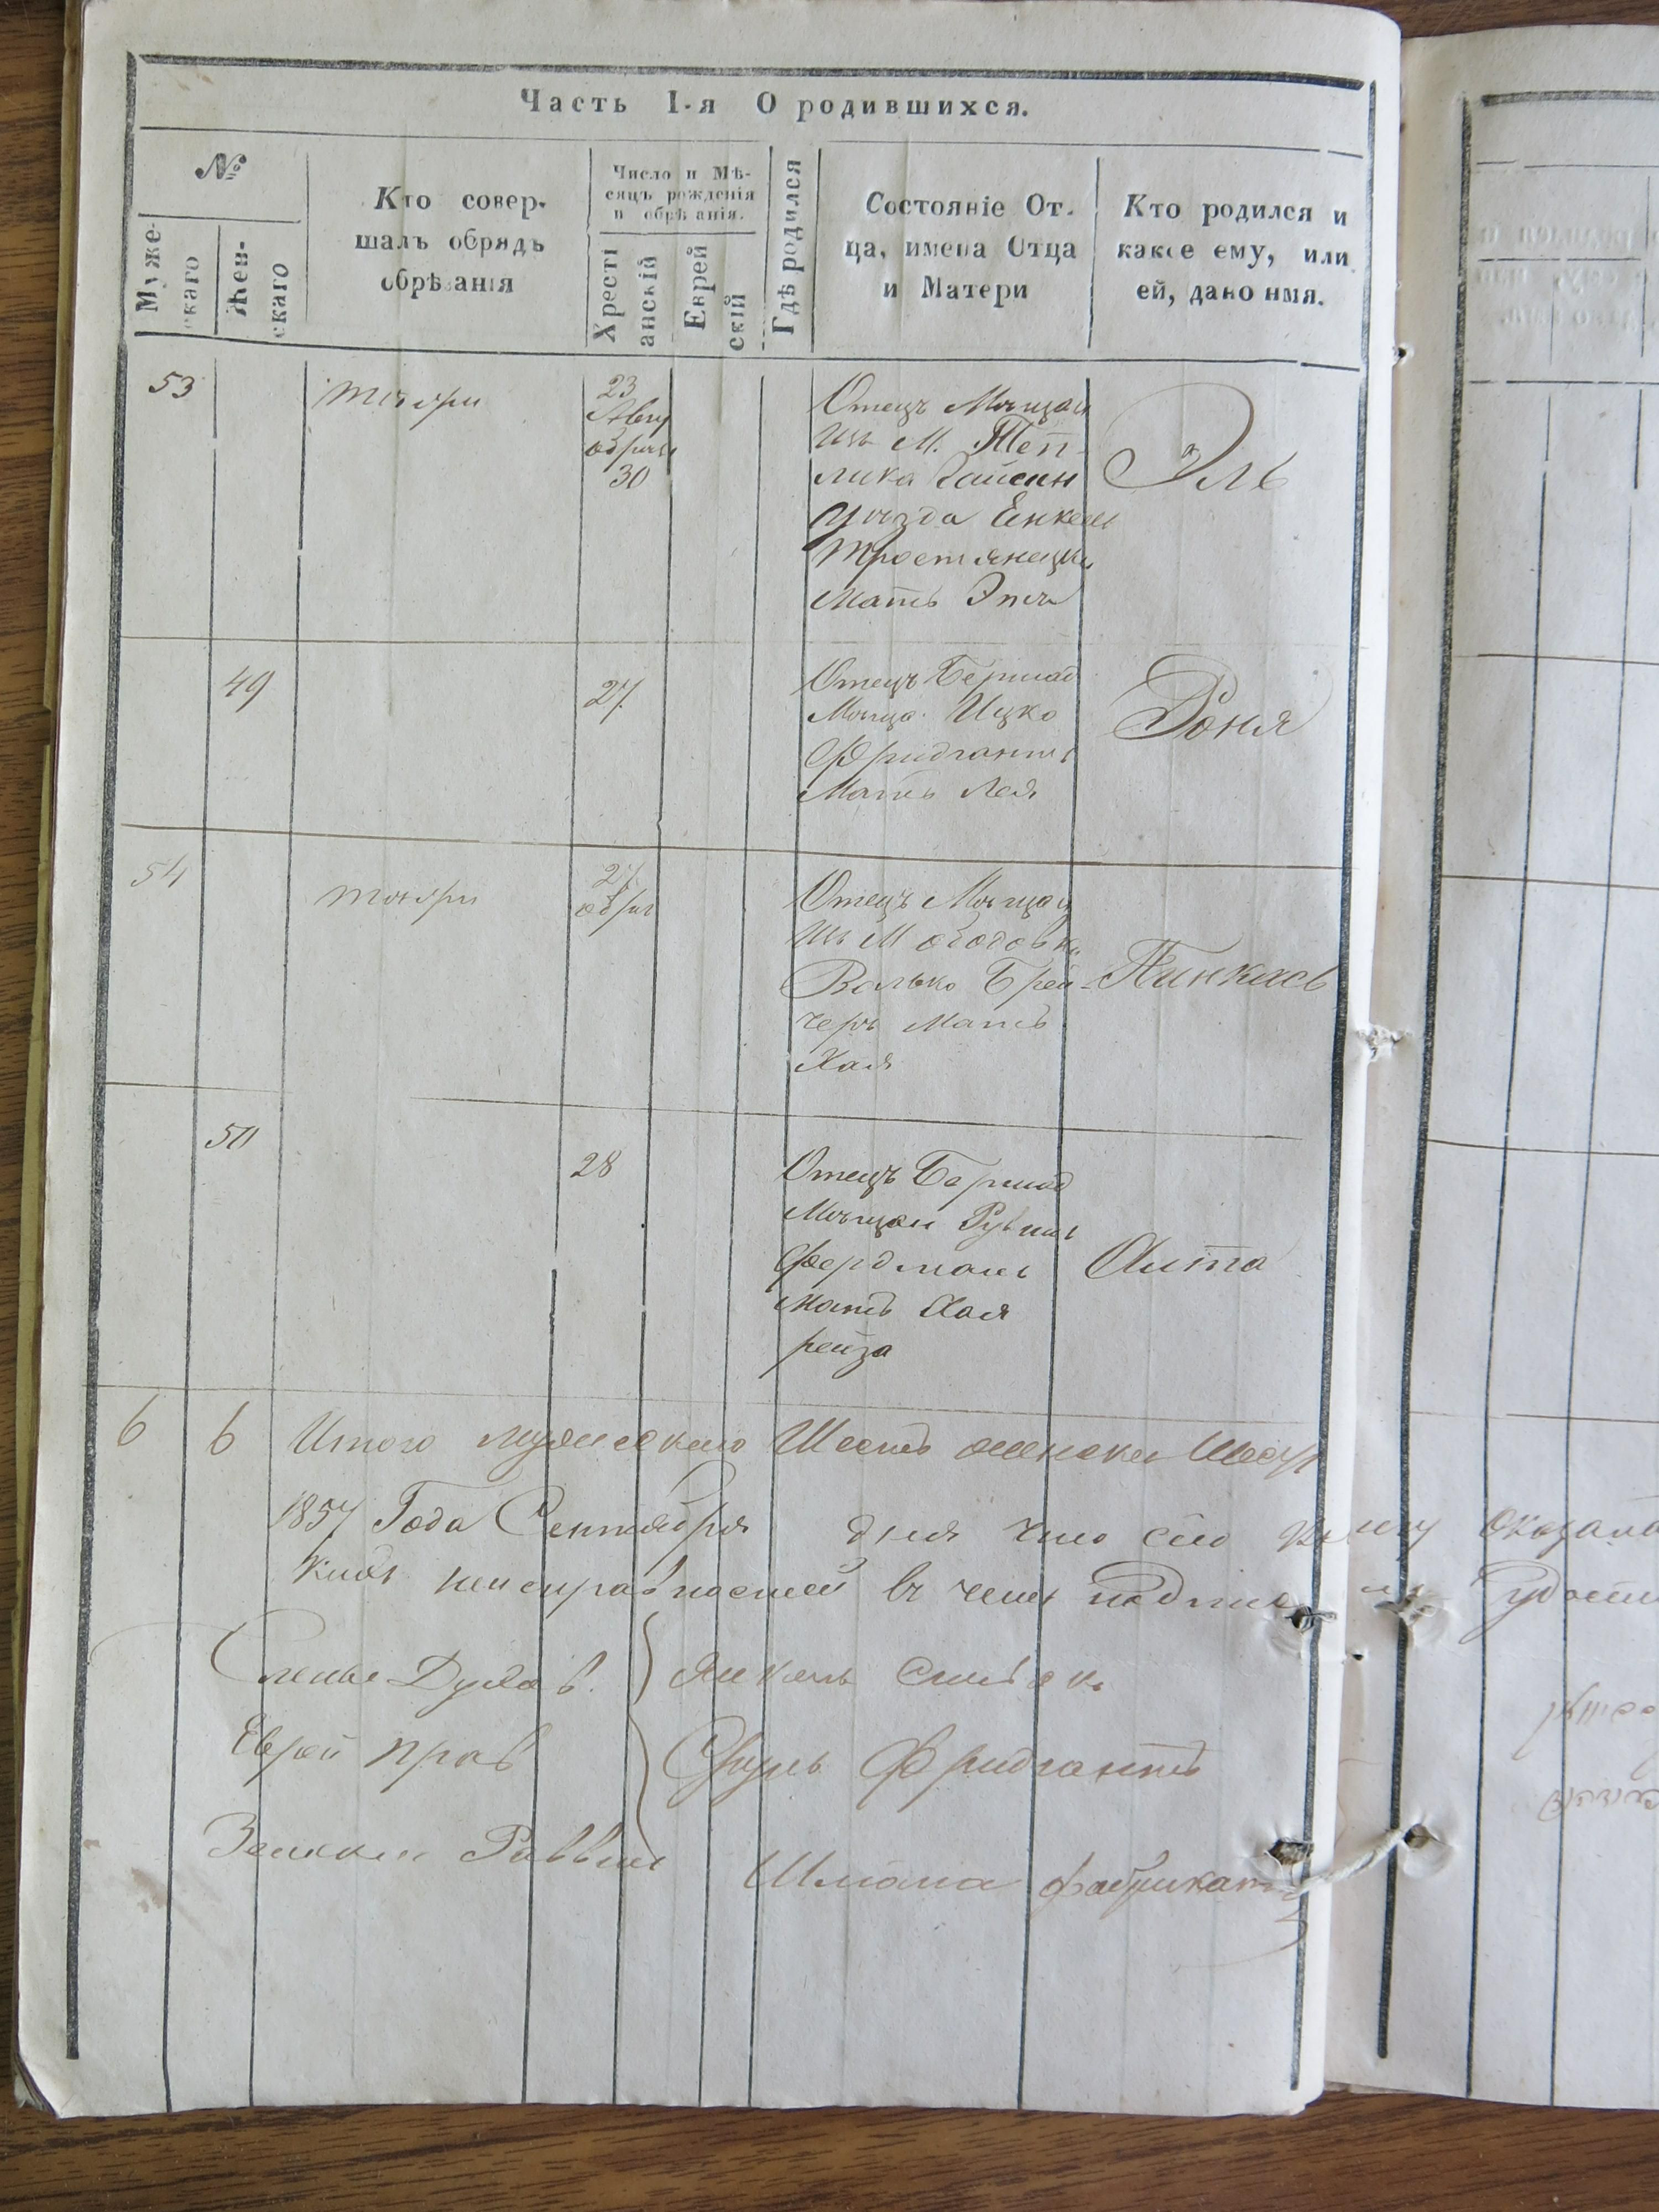 Часть I-я О родившихся.
№
Муже-
скаго
Жен-
скаго
Кто совер-
шалъ обрядъ
обрѣзанія
Число и Мѣ-
сяцъ рожденія
и обрѣзанія.
Христі
анскій
Еврей
скій
Гдѣ родился
Состояніе От-
ца, имена Отца
и Матери
Кто родился и
какое ему, или
ей, дано имя.
53
23
Авгу
30
Отецъ Мѣщан
инъ М. Теп-
лика Гайсин
уѣзда Енкель
Тростянецкий
Мать Эня
Эль
49
27
Отецъ Бершад
Мѣща. Ицко
Фридгантъ
Мать Лея
Роня
54
27
обрѣ
Отецъ Мѣщан
инъ М Ободовки
Волько Брей-
черъ Мать
Хая
Пинкась
50
28
Отецъ Бершад
Мѣщан Рувинъ
Фердманъ
Мать Хая
рейза
Алта
6 6 Итого мужескаго Шесть женска Шесть
1857 Года Сентября дня что сію книгу оказала
неисправностей въ чемъ подпис
Члены Духов.
Еврей прав
Янкель Спивакъ
Фридгантъ
Раввинъ
Шлома Фабрикантъ